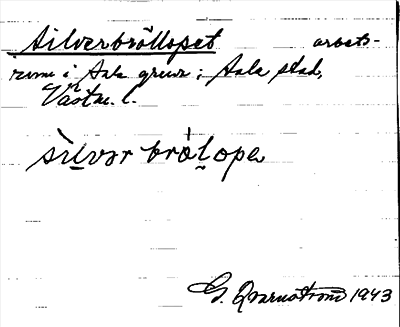 Silverbröllopet arbets-
rum i Sala gruva; Sala stad,
Västm. l.
silvər brölope
G. Qvarnström 1943